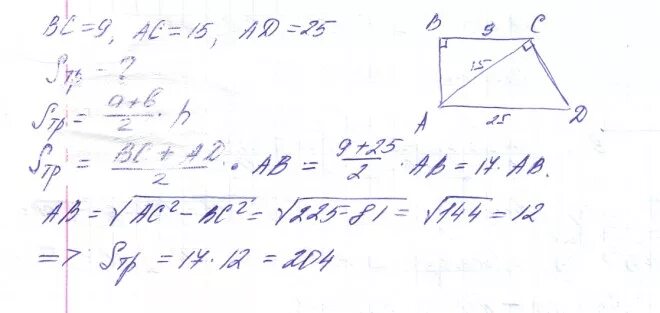 BC=9, AC=15, AD=25
Sтр - ?
Sтр = (a+b)/2 · h
Sтр = (BC + AD)/2 · AB = (9+25)/2 · AB = 17 · AB.
AB = √(AC² - BC²) = √(225-81) = √144 = 12
=> Sтр = 17 · 12 = 204
B 9 C
15
A 25 D